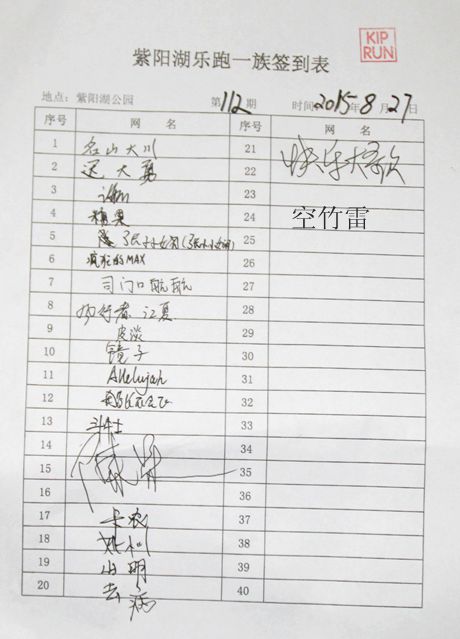 KIP
RUN
紫阳湖乐跑一族签到表
地点：紫阳湖公园 第112期 时间2015年8月27日
序号 网 名 序号 网 名
1 名山大川 21
2 还大勇 22 快乐大哥欣
3 23
4 糖果 24 空竹雷
5 25
6 疯狂的MAX 26
7 司门口航航 27
8 江夏 28
9 皮淡 29
10 镜子 30
11 Allelujah 31
12 32
13 斗牛士 33
14 34
15 35
16 36
17 卡农 37
18 38
19 山明 39
20 去病 40